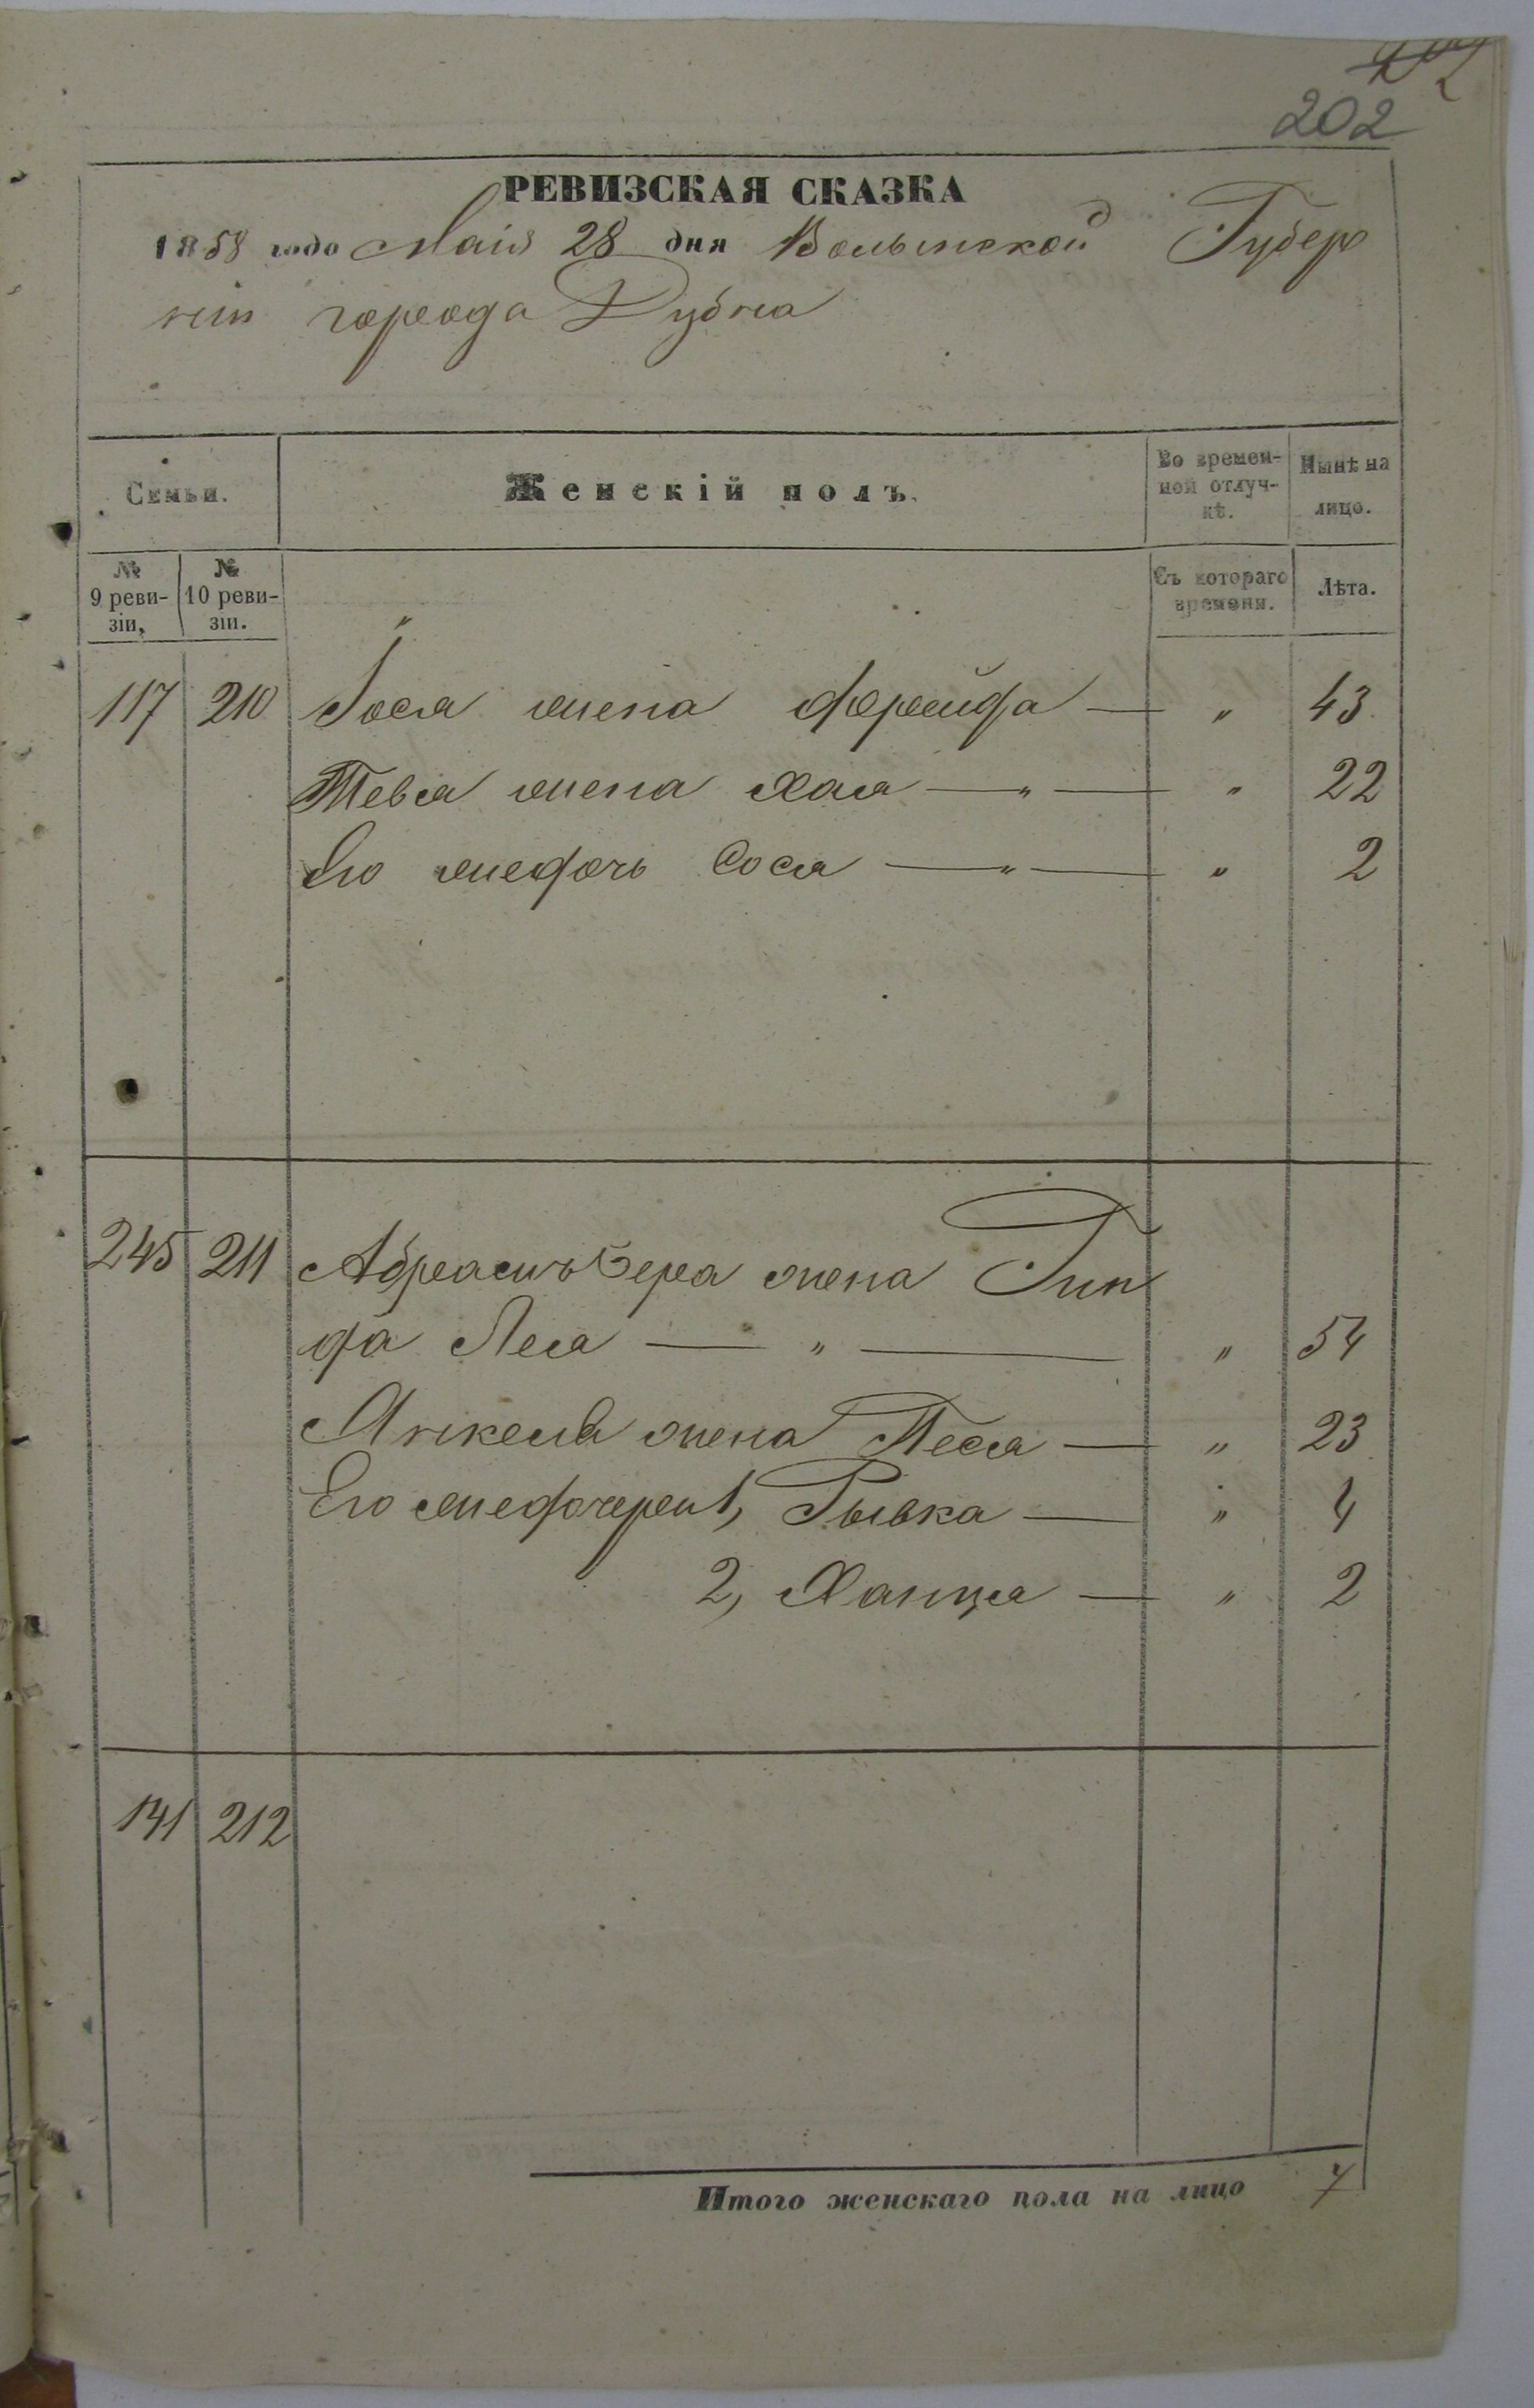 202
РЕВИЗСКАЯ СКАЗКА
1858 года Маія 28 дня Волынской Губер
ніи города Дубна
Семьи.
Женскій полъ.
Во времен-
ной отлуч-
кѣ.
Нынѣ на
лицо.
№
9 реви-
зіи,
№
10 реви-
зіи.
Съ котораго
времени.
Лѣта.
117 210 Іося жена Фрейда — „ 43
Тевія жена Хая — „ — „ 22
Его дочь Сося — „ — „ 2
245 211 Абрамъ Бера жена Гин
да Лея — „ — „ 54
Янкеля жена Песя — „ 23
Его дочери 1, Рывка — „ 4
2, Ханця — „ 2
141 212
Итого женскаго пола на лицо 7